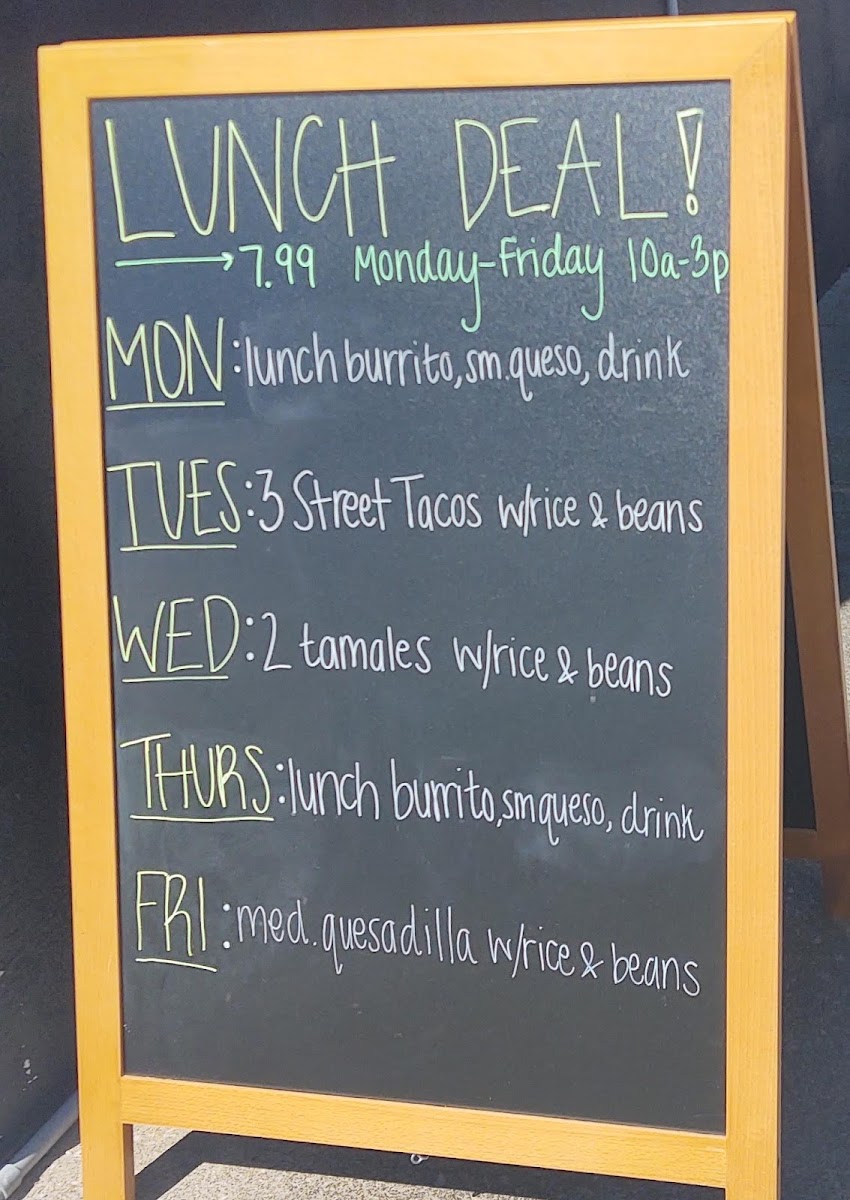 LUNCH DEAL!
→ 7.99 Monday-Friday 10a-3p
MON: lunch burrito, sm. queso, drink
TUES: 3 Street Tacos w/rice & beans
WED: 2 tamales w/rice & beans
THURS: lunch burrito, sm queso, drink
FRI: med. quesadilla w/rice & beans